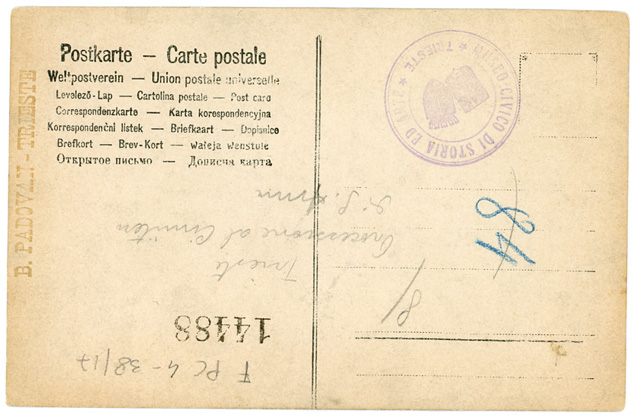 Postkarte — Carte postale
Weltpostverein — Union postale universelle
Levelező-Lap — Cartolina postale — Post card
Correspondenzkarte — Karta korespondencyjna
Korrespondenční lístek — Briefkaart — Dopisnice
Brefkort — Brev-Kort — Waleja Wenstule
Открытое письмо — Дописна карта
B. PADOVAN - TRIESTE
CIVICO DI STORIA ED ARTE
TRIESTE
84
8/
Trieste
Processione al Cimitero
di S. Anna
14488
F PC 4-38/17